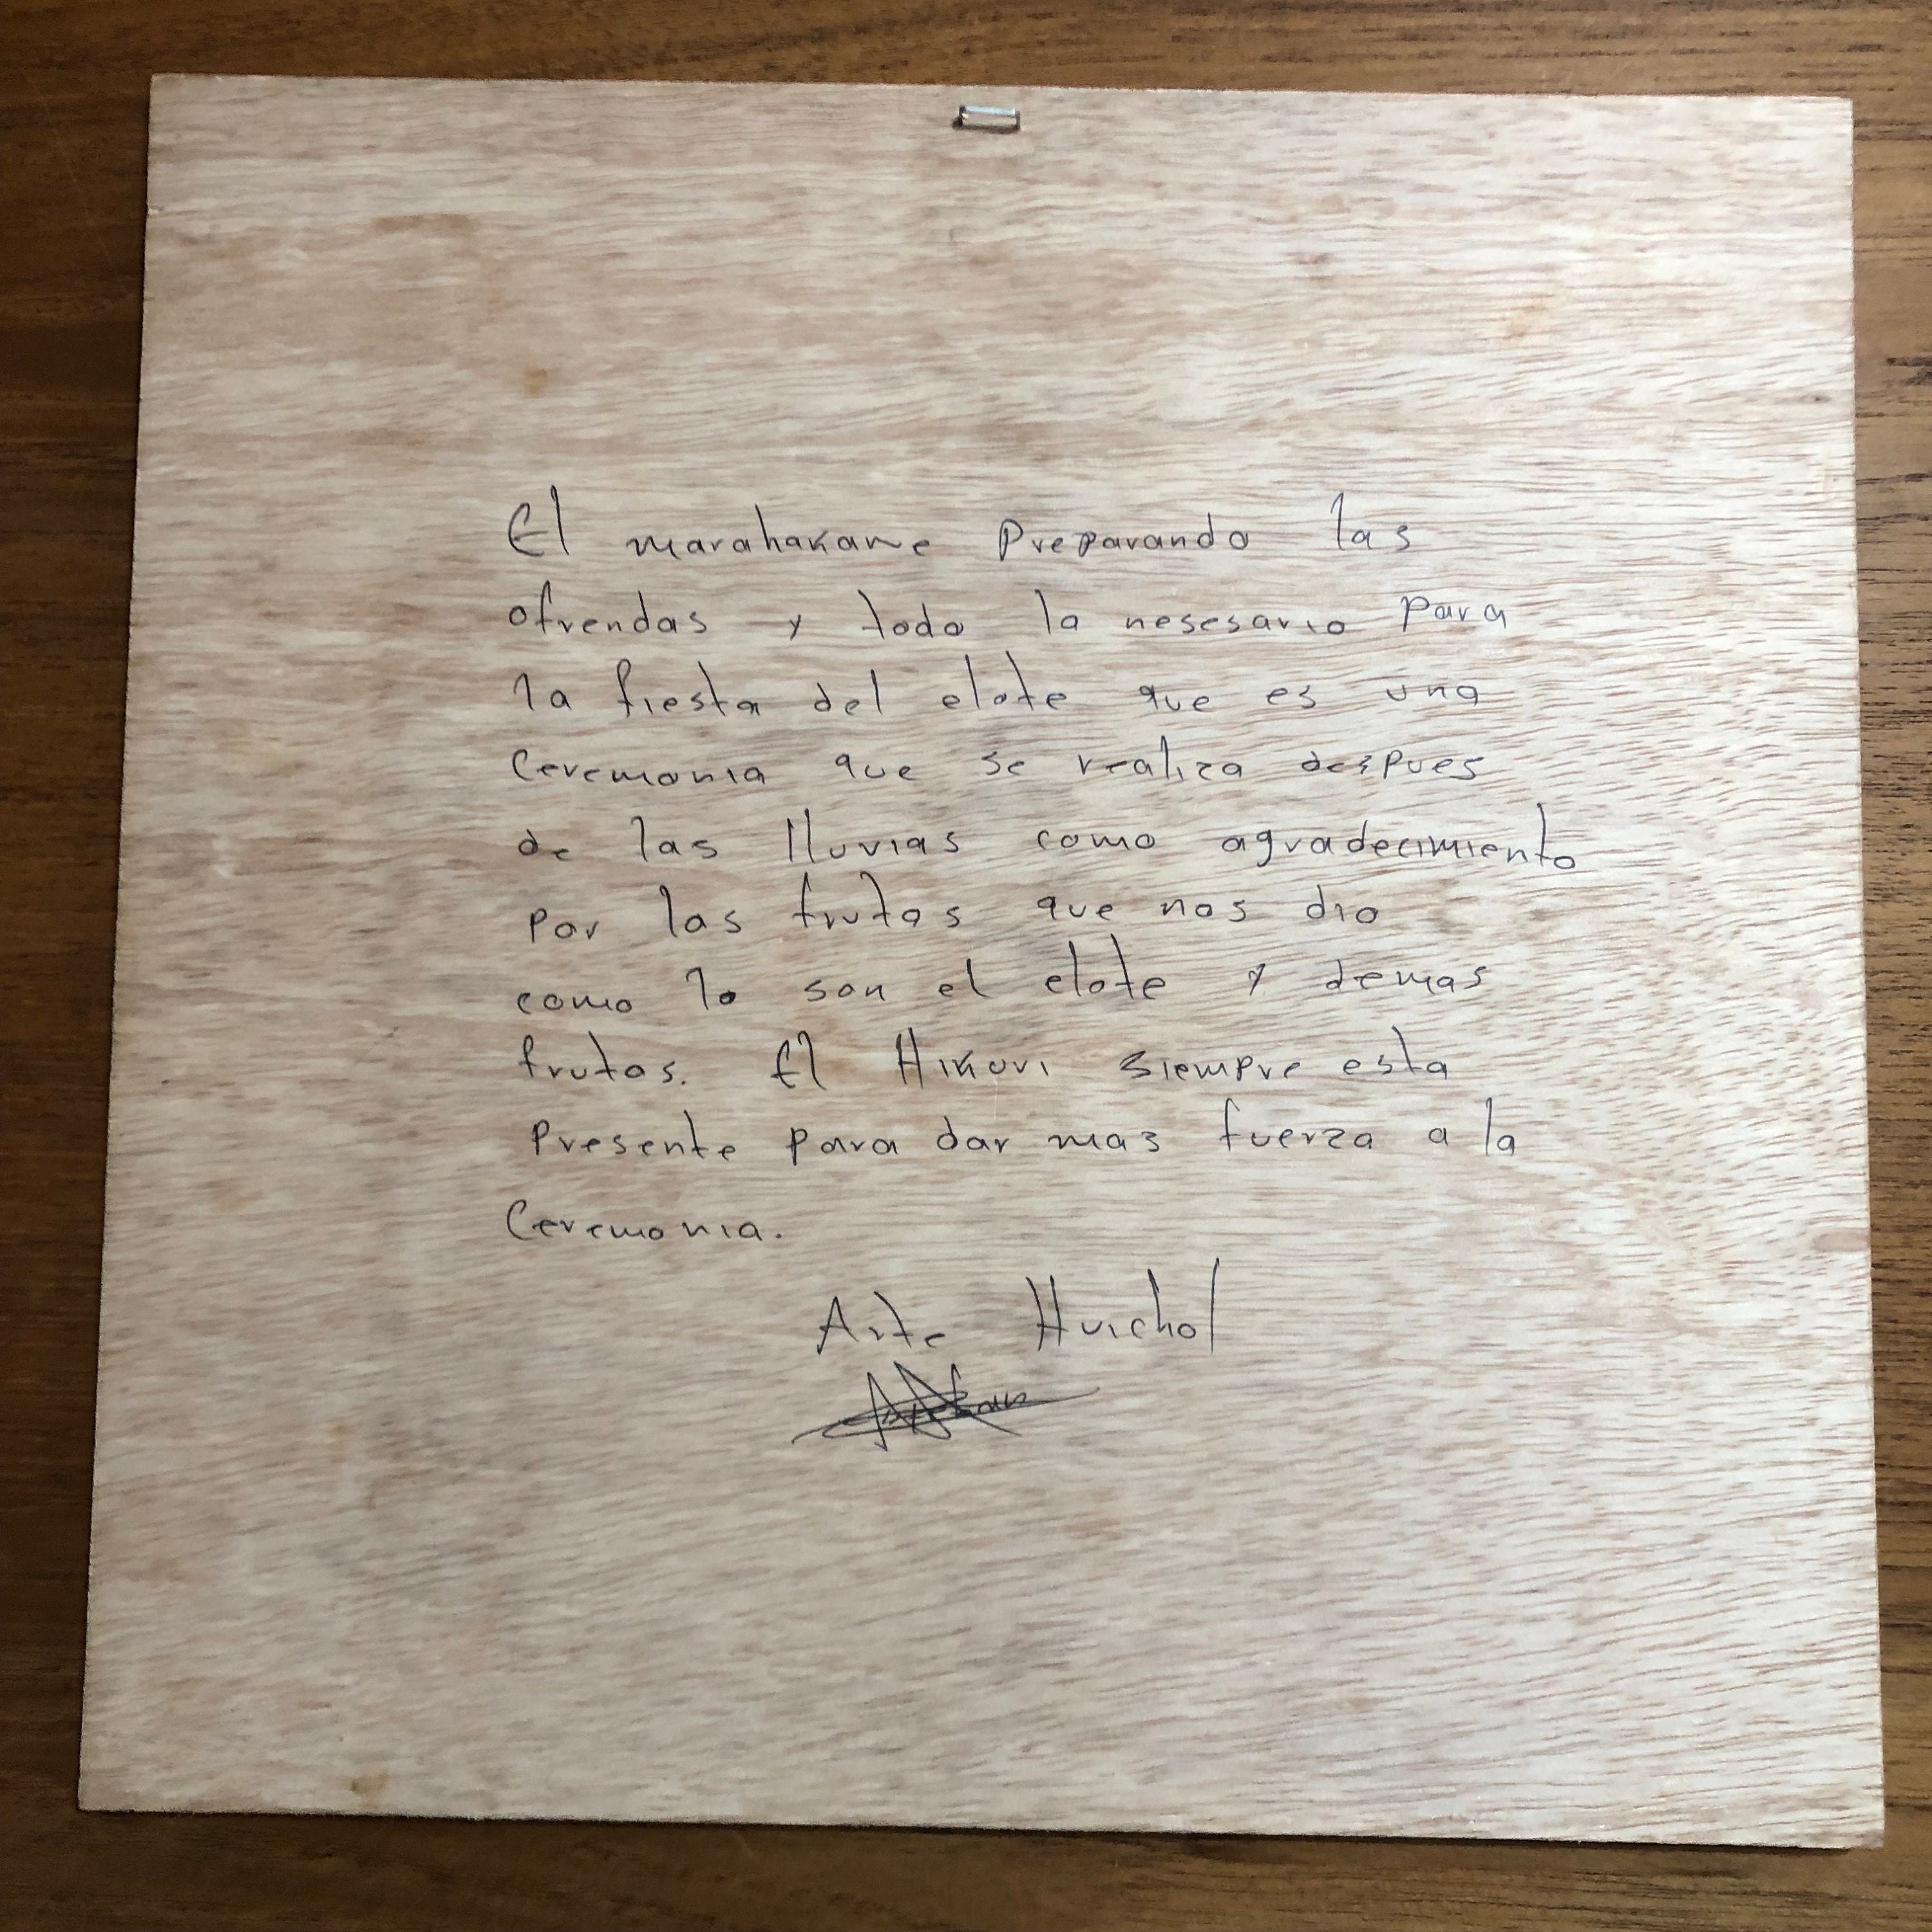 El marahakame Preparando las
ofrendas y todo lo nesesario para
la fiesta del elote que es una
Ceremonia que se realiza despues
de las lluvias como agradecimiento
por las frutos que nos dio
como lo son el elote y demas
frutos. El Hikuri siempre esta
Presente para dar mas fuerza a la
Ceremonia.
Arte Huichol